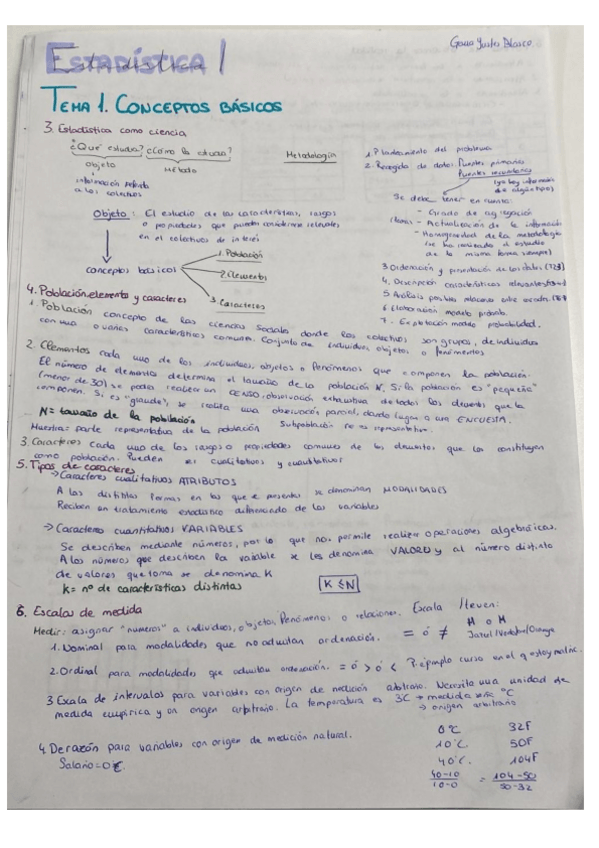 ESTADÍSTICA I
TEMA 1. CONCEPTOS BÁSICOS
3. Estadística como ciencia
¿Qué estudia? ¿Cómo lo estudia?
Objeto
Método
Metodología
información referida
a los colectivos
Objeto: El estudio de las características, rasgos
o propiedades que pueden considerarse relevantes
en el colectivos de interés
conceptos básicos
1. Población
2. Elementos
3. Caracteres
1. Planteamiento del problema
2. Recogida de datos: Fuentes primarias
Fuentes secundarias
Se debe tener en cuenta:
- Grado de agregación
- Actualización de la información
- Homogeneidad de la metodología
de la misma forma siempre)
3. Ordenación y presentación de los datos
4. Descripción características relevantes
5. Análisis posibles relaciones
6. Elaboración modelo probab.
7. Explotación modelo probabilidad.
4. Población, elemento y caracteres
1. Población concepto de las ciencias sociales donde los colectivos son grupos, de individuos
con una o varias características comunes. Conjunto de individuos, objetos o fenómenos
2. Elementos cada uno de los individuos, objetos o fenómenos que componen la población.
El número de elementos determina el tamaño de la población N. Si la población es "pequeña"
(menor de 30) se podrá realizar un CENSO, observación exhaustiva de todos los elementos que la
componen. Si es "grande", se realiza una observación parcial, dando lugar a una ENCUESTA.
N = tamaño de la población
Muestra: parte representativa de la población Subpoblación no es representativa.
3. Caracteres cada uno de los rasgos o propiedades comunes de los elementos que los constituyen
como población. Pueden ser cualitativos y cuantitativos
5. Tipos de caracteres
→ Caracteres cualitativos ATRIBUTOS
A las distintas formas en las que se presentan se denominan MODALIDADES
Reciben un tratamiento estadístico diferenciado de las variables
→ Caracteres cuantitativos VARIABLES
Se describen mediante números, por lo que nos permite realizar operaciones algebraicas.
A los números que describen la variable se les denomina VALORES y al número distinto
de valores que toma se denomina K
K = nº de características distintas
K ≤ N
6. Escalas de medida
Medir: asignar "números" a individuos, objetos, fenómenos o relaciones. Escala
1. Nominal para modalidades que no admitan ordenación. = ó ≠
2. Ordinal para modalidades que admitan ordenación. = ó > ó < Ejemplo curso en el q estoy matric.
3. Escala de intervalos para variables con origen de medición arbitrario. Necesita una unidad de
medida empírica y un origen arbitrario. La temperatura es
→ origen arbitrario
4. De razón para variables con origen de medición natural.
Salario = 0€
0ºC 32F
10ºC 50F
40ºC 104F
40-10 / 10-0 = 104-50 / 50-32